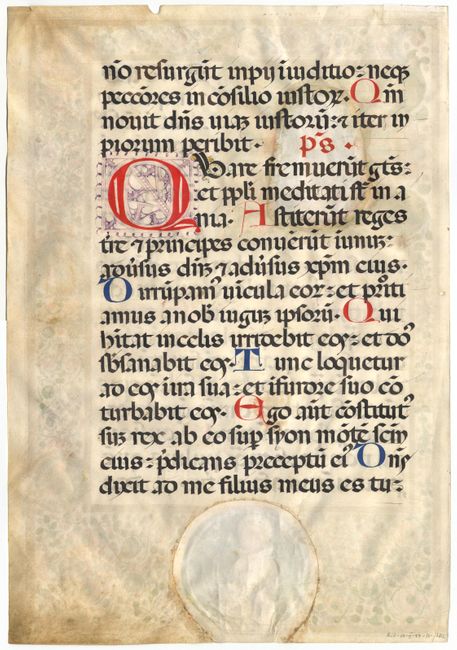 nō resurgūt impij ī iuditio: neqꝫ
peccōres in cōsilio iustoꝝ. Qm̄
nouit dn̄s uiaꝫ iustorū: ⁊ iter im
piorum peribit. p̄s.
Quare fremuerūt gēs:
et ppl̄i meditati st̄ ina
nia. Astiterūt reges
tr̄e ⁊ principes conuenerūt ī unuꝫ:
aduersus dn̄ꝫ ⁊ aduersus xpm̄ eius.
Dirrūpam⁹ uīcula eoꝝ: et proiti
amus a nob̄ iugū ipsorū. Qui
hitat in celis irridebit eos: et do⁹
sb̄sanabit eos. Tunc loquetur
ad eos ī ira sua: et ī furore suo cō
turbabit eos. Ego aūt cōstitut⁹
suꝫ rex ab eo suꝑ syon mōtē scm̄
eius: p̄dicans preceptū ei⁹ Dn̄s
dixit ad me filius meus es tu: